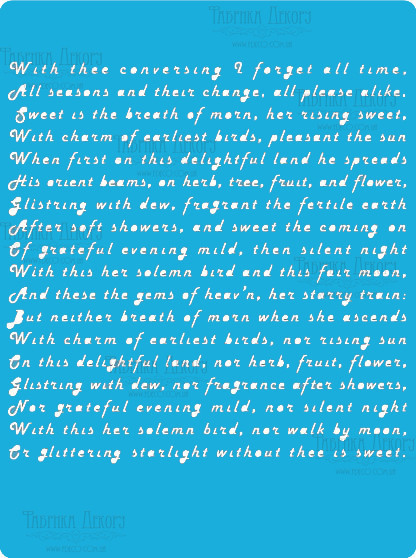 With thee conversing I forget all time,
All seasons and their change, all please alike,
Sweet is the breath of morn, her rising sweet,
With charm of earliest birds, pleasant the sun
When first on this delightful land he spreads
His orient beams, on herb, tree, fruit, and flower,
Glistring with dew, fragrant the fertile earth
After soft showers, and sweet the coming on
Of grateful evening mild, then silent night
With this her solemn bird and this fair moon,
And these the gems of heav'n, her starry train:
But neither breath of morn when she ascends
With charm of earliest birds, nor rising sun
On this delightful land, nor herb, fruit, flower,
Glistring with dew, nor fragrance after showers,
Nor grateful evening mild, nor silent night
With this her solemn bird, nor walk by moon,
Or glittering starlight without thee is sweet.
Фабрика Декору